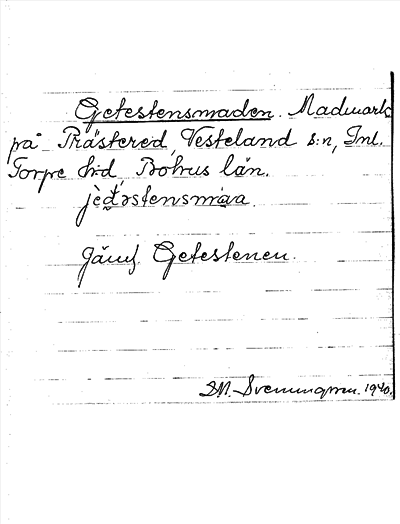 Getestensmaden. Madmark
på Prästered, Vesteland s:n, Inl.
Torpe hd, Bohus län.
jèd̯əstensmáa.
Jämf. Getestenen.
1940.